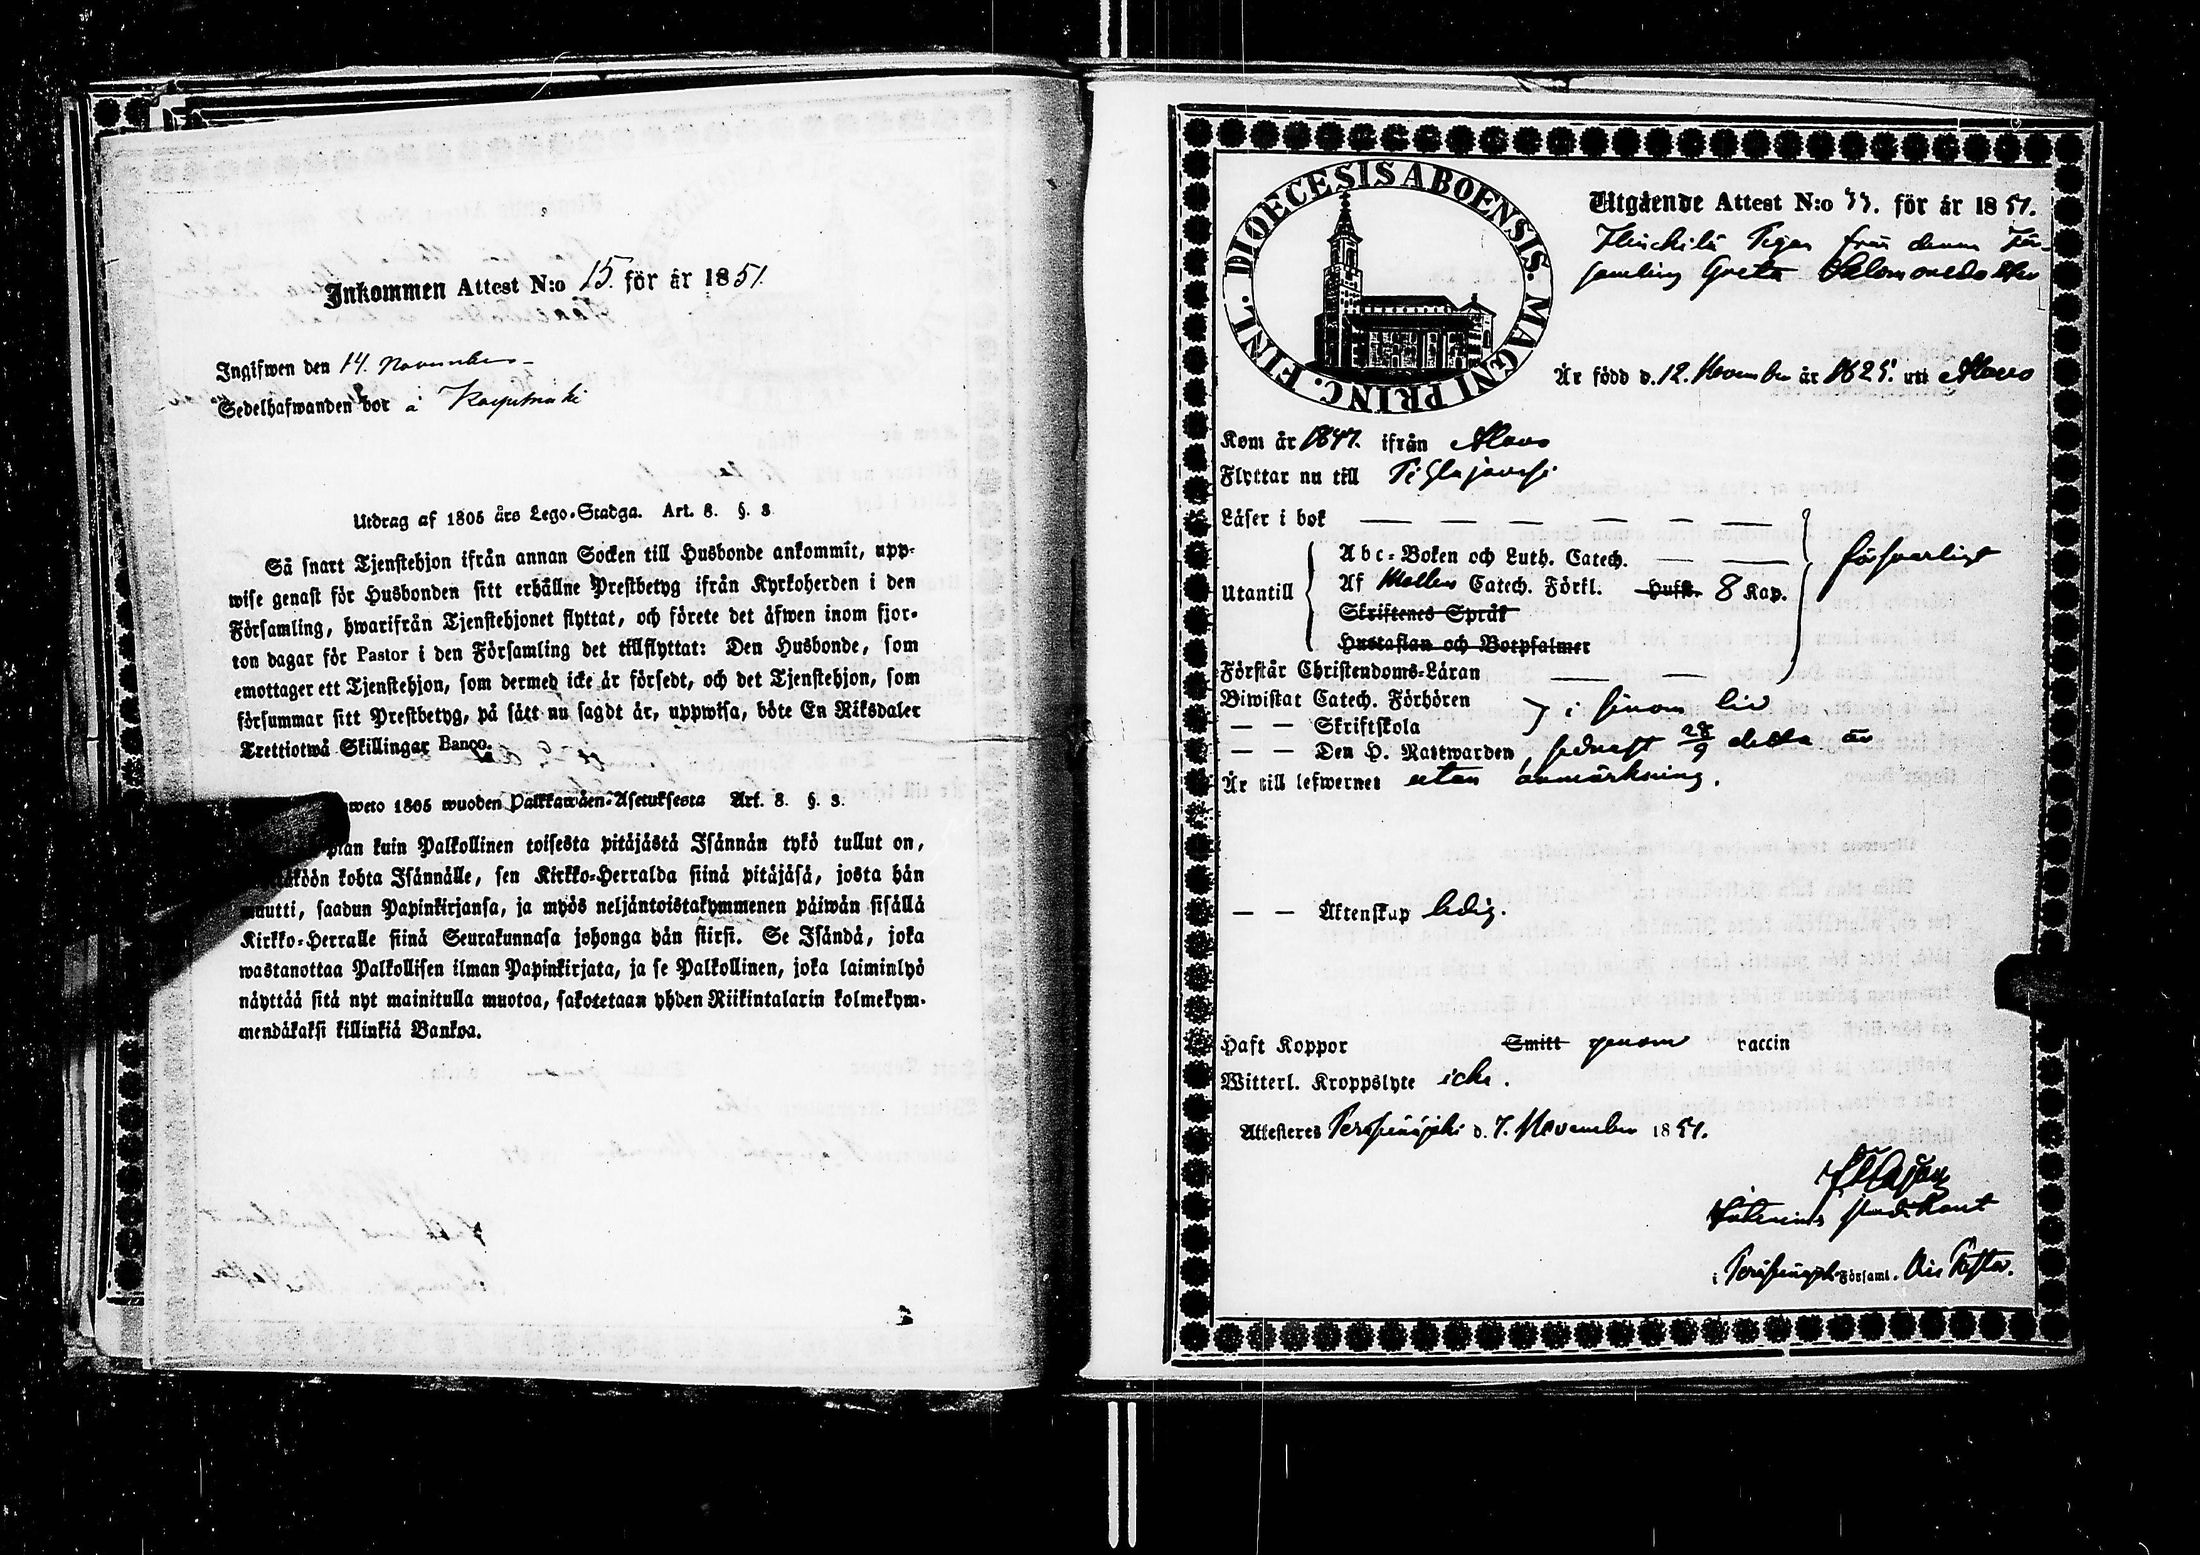 Inkommen Attest N:o 15. för år 1851.
Ingifwen den 14. November
Sedelhafwanden bor å
Utdrag af 1805 års Lego-Stadga. Art. 8. §. 3.
Så snart Tjenstehjon ifrån annan Socken till Husbonde ankommit, upp-
wise genast för Husbonden sitt erhållne Prestbetyg ifrån Kyrkoherden i den
Församling, hwarifrån Tjenstehjonet flyttat, och förete det äfwen inom fjor-
ton dagar för Pastor i den Församling det tillflyttat: Den Husbonde, som
emottager ett Tjenstehjon, som dermed icke är försedt, och det Tjenstehjon, som
försummar sitt Prestbetyg, på sätt nu sagdt är, uppwisa, böte En Riksdaler
Trettiotwå Skillingar Banco.
weto 1805 wuoden Palkkawäen-Asetuksesta Art. 8. §. 3.
pian kuin Palkollinen toisesta pitäjästä Isännän tykö tullut on,
köön kohta Isännälle, sen Kirkko-Herralda siinä pitäjäsä, josta hän
muutti, saadun Papinkirjansa, ja myös neljäntoistakymmenen päiwän sisällä
Kirkko-Herralle siinä Seurakunnasa johonga hän siirsi. Se Isändä, joka
wastanottaa Palkollisen ilman Papinkirjata, ja se Palkollinen, joka laiminlyö
näyttää sitä nyt mainitulla muotoa, sakotetaan yhden Riikintalarin kolmekym-
mendäkaksi killinkiä Bankoa.
DIOECESIS ABOENSIS. MAGNI PRINC. FINL.
Utgående Attest N:o 33. för år 1851.
Pigan från denna För-
samling Greta Salomonsdotter
Är född d. 12. November år 1825. uti Alavo
Kom år 1847. ifrån Alavo
Flyttar nu till Pihlajavesi
Läser i bok
Abc-Boken och Luth. Catech.
försvarligt
Utantill
Af Möllers Catech. Förkl. Hufst. 8 Kap.
Skriftenes Språk
Hustaflan och Botpsalmer
Förstår Christendoms-Läran
Biwistat Catech. Förhören
i sinom tid
— — Skriftskola
— — Den H. Nattwarden, sednast 28/9 detta år
Är till lefwernet utan anmärkning.
— — Äktenskap ledig.
Haft Koppor Smitt genom vaccin
Witterl. Kroppslyte icke.
Attesteres Peräseinäjoki d. 7. November 1851.
i Peräseinäjoki Församl.